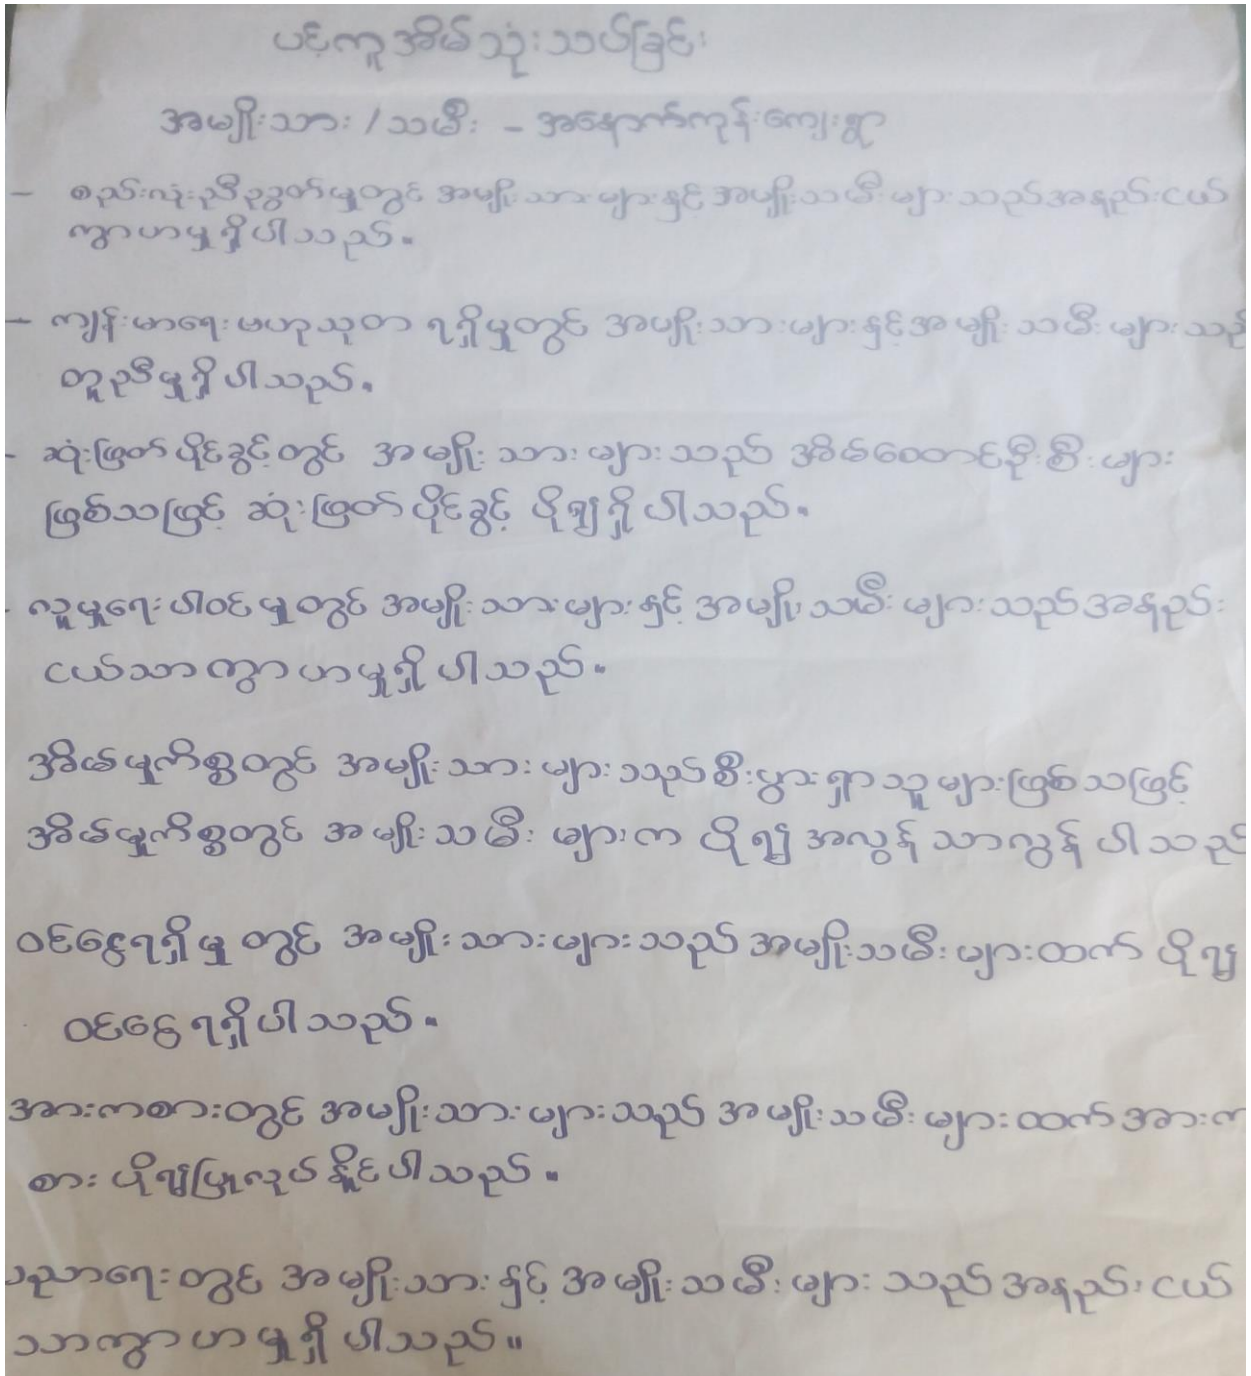 ပင့်ကူအိမ်သုံးသပ်ခြင်း
အမျိုးသား / သမီး - အနောက်ကုန်းကျေးရွာ
- စည်းလုံးညီညွတ်မှုတွင် အမျိုးသားများနှင့်အမျိုးသမီးများသည်အနည်းငယ်
ကွာဟမှုရှိပါသည်။
- ကျန်းမာရေးဗဟုသုတ ရရှိမှုတွင် အမျိုးသားများနှင့်အမျိုးသမီးများသည်
တူညီမှုရှိပါသည်။
- ဆုံးဖြတ်ပိုင်ခွင့်တွင် အမျိုးသားများသည် အိမ်ထောင်ဦးစီးများ
ဖြစ်သဖြင့် ဆုံးဖြတ်ပိုင်ခွင့် ပို၍ရှိပါသည်။
- လူမှုရေးပါဝင်မှုတွင် အမျိုးသားများနှင့် အမျိုးသမီးများသည်အနည်း
ငယ်သာကွာဟမှုရှိပါသည်။
အိမ်မှုကိစ္စတွင် အမျိုးသားများသည်စီးပွားရှာသူများဖြစ်သဖြင့်
အိမ်မှုကိစ္စတွင် အမျိုးသမီးများက ပို၍အလွန်သာလွန်ပါသည်
ဝင်ငွေရရှိမှုတွင် အမျိုးသားများသည်အမျိုးသမီးများထက် ပို၍
ဝင်ငွေရရှိပါသည်။
အားကစားတွင် အမျိုးသားများသည် အမျိုးသမီးများထက်အားက
စားပို၍ပြုလုပ်နိုင်ပါသည်။
ပညာရေးတွင် အမျိုးသားနှင့်အမျိုးသမီးများသည်အနည်းငယ်
သာကွာဟမှုရှိပါသည်။